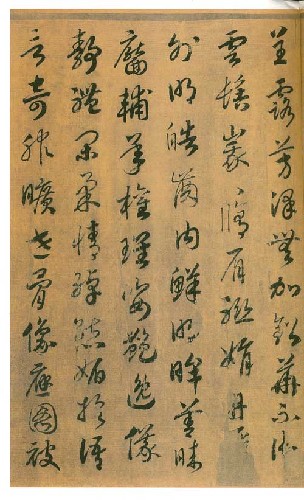 呈露芳澤無加鉛華不御
雲髻峩々脩眉聯娟丹脣
外朗皓齒內鮮明眸善睞
靨輔承權瓌姿艷逸儀
靜體閑柔情綽態媚於語
言奇服曠世骨像應圖被